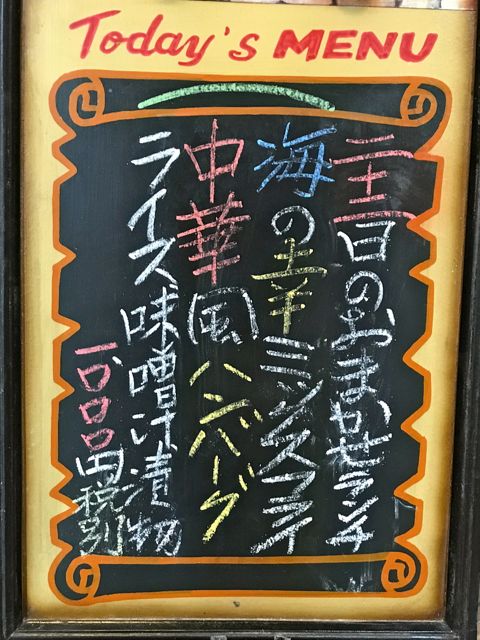 Today's MENU
三十一日のおまかせランチ
海の幸ミックスフライ
中華風ハンバーグ
ライス味噌汁漬物
一〇〇〇円税別